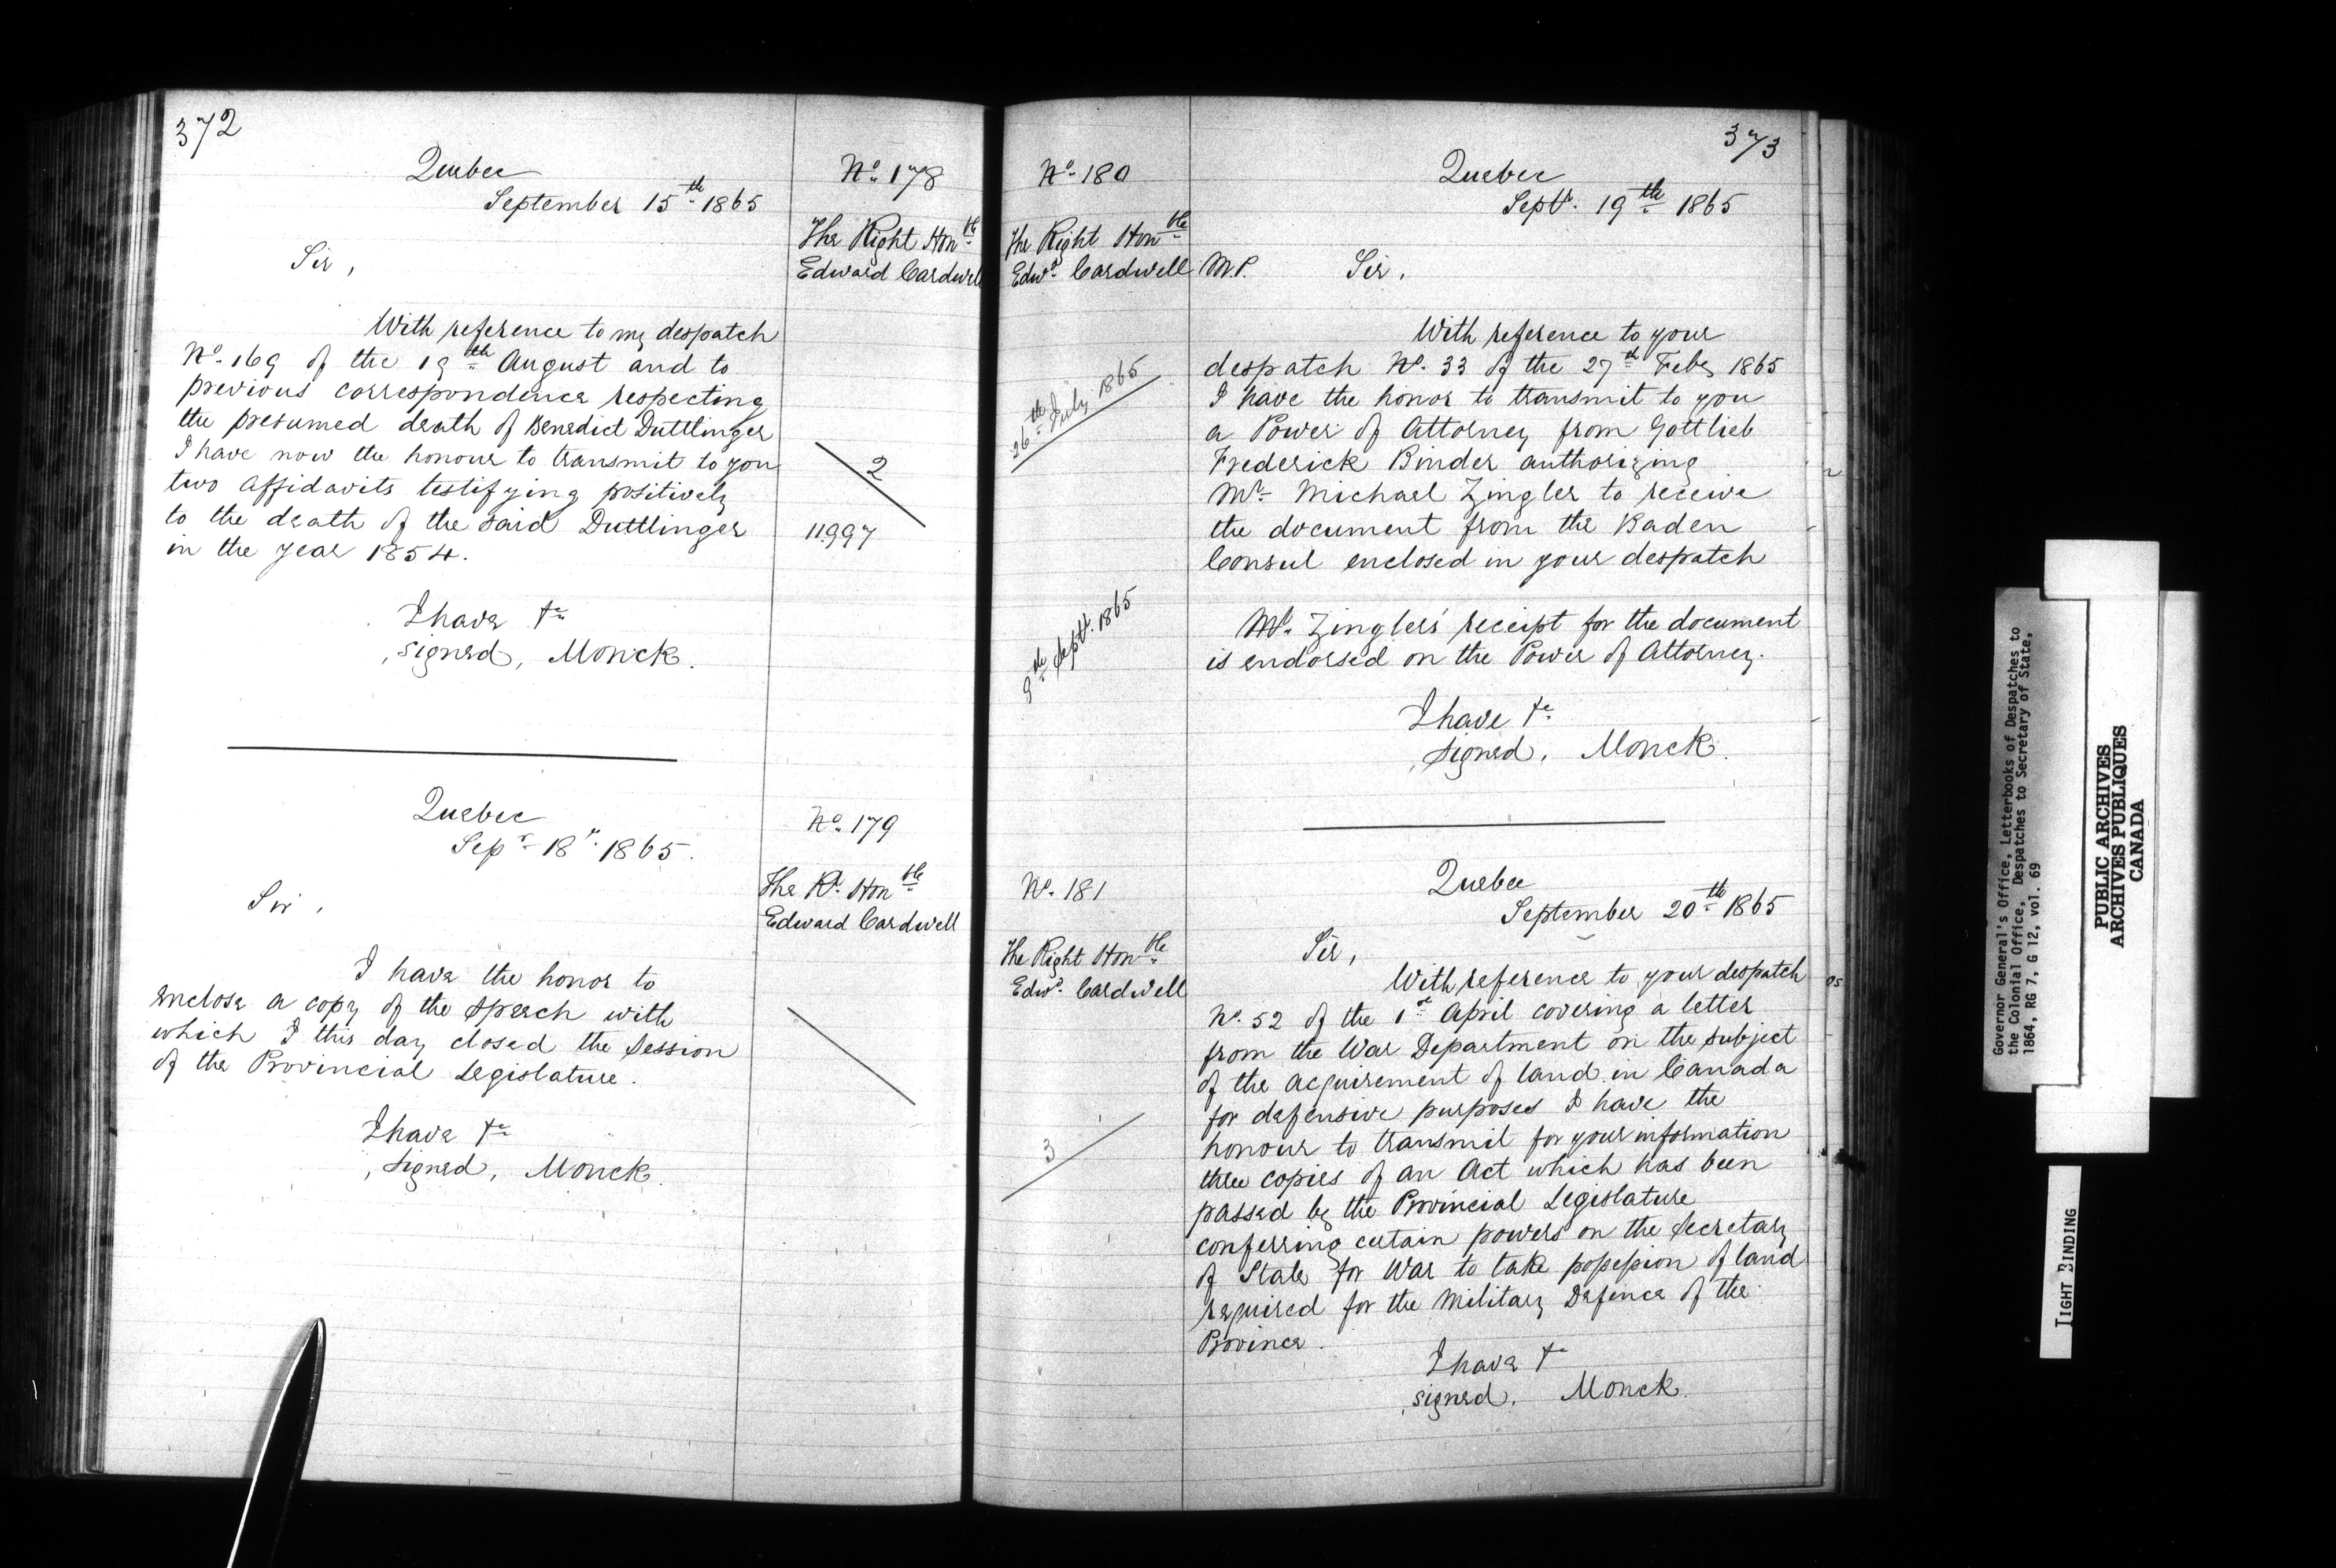 372
Quebec
September 15th 1865
No. 178
The Right Honble
Edward Cardwell
Sir,
With reference to my despatch
No. 169 of the 19th August and to
previous correspondence respecting
the presumed death of Benedict Duttlinger
I have now the honour to transmit to you
two affidavits testifying positively
to the death of the said Duttlinger
in the year 1854.
2
11997
I have &c
signed, Monck.
Quebec
Sepr 18th 1865.
No. 179
The Rt. Honble
Edward Cardwell
Sir,
I have the honor to
enclose a copy of the speech with
which I this day closed the Session
of the Provincial Legislature.
I have &c
signed, Monck.
373
No. 180
The Right Honble
Edwd. Cardwell M.P.
Quebec
Sept. 19th 1865
Sir,
26th July 1865
With reference to your
despatch No. 33 of the 27th Feby 1865
I have the honor to transmit to you
a Power of Attorney from Gottlieb
Frederick Binder authorizing
Mr. Michael Zingler to receive
the document from the Baden
Consul enclosed in your despatch
9th Sept. 1865
Mr. Zingler's receipt for the document
is endorsed on the Power of Attorney.
I have &c
signed, Monck.
No. 181
The Right Honble
Edwd. Cardwell
Quebec
September 20th 1865
Sir,
With reference to your despatch
No. 52 of the 1st April covering a letter
from the War Department on the subject
of the acquirement of land in Canada
for defensive purposes I have the
honour to transmit for your information
three copies of an Act which has been
passed by the Provincial Legislature
conferring certain powers on the Secretary
of State for War to take possession of land
required for the Military Defence of the
Province.
3
I have &c
signed, Monck.
Governor General's Office, Letterbooks of Despatches to
the Colonial Office, Despatches to Secretary of State,
1864, RG 7, G 12, vol. 69
PUBLIC ARCHIVES
ARCHIVES PUBLIQUES
CANADA
TIGHT BINDING